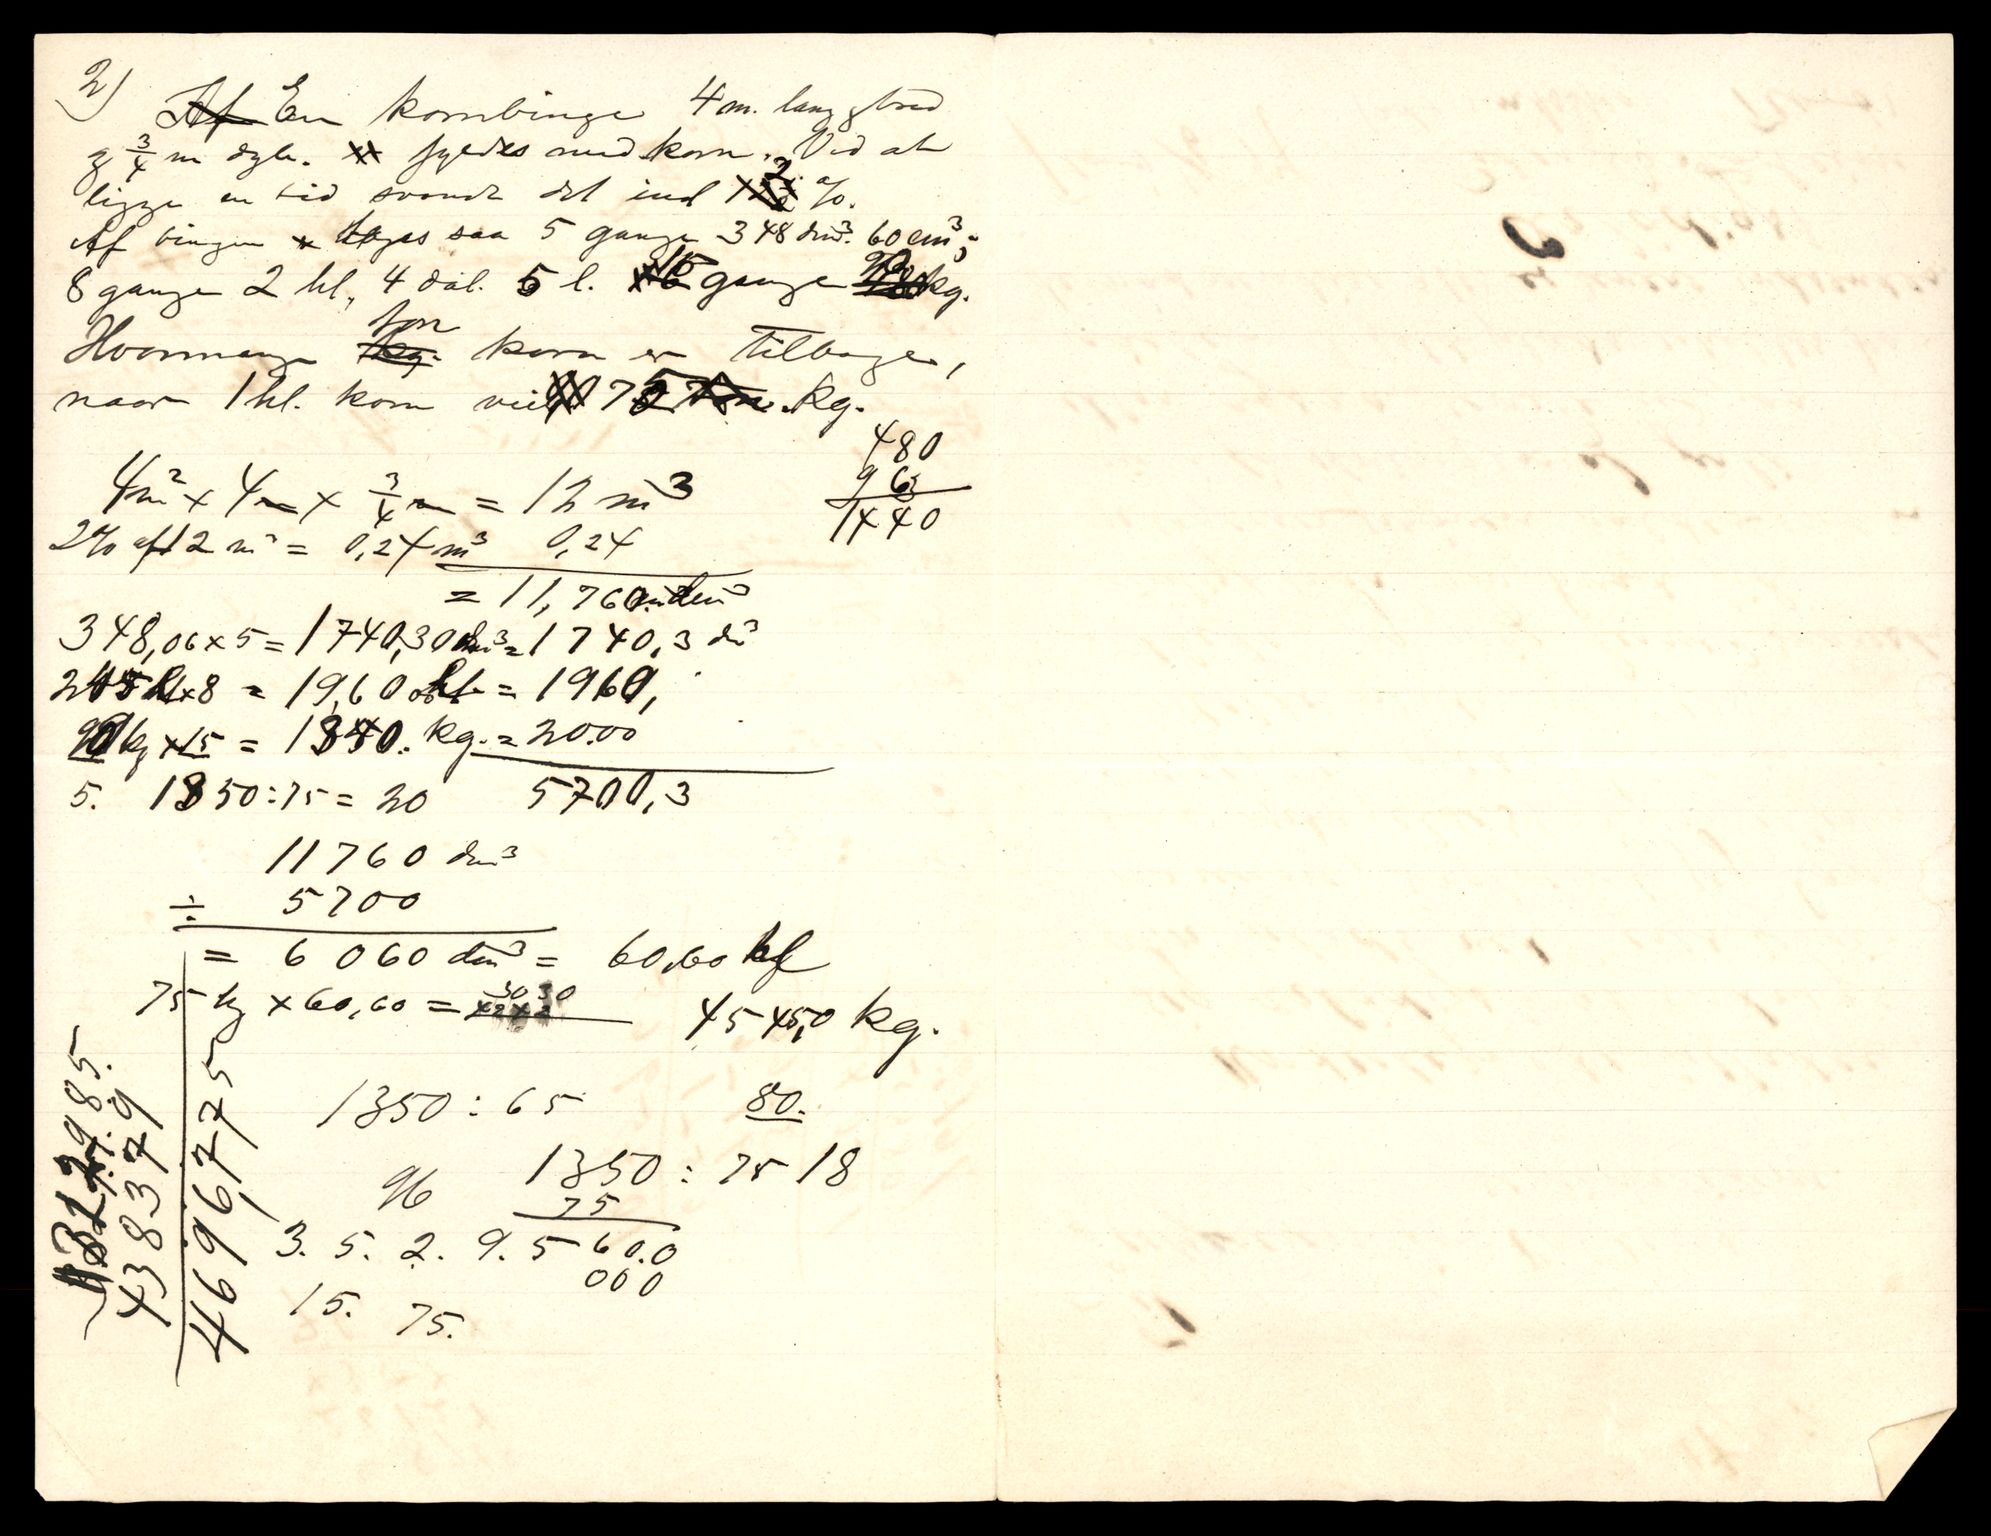 2)
Af En kornbinge 4 m. lang g bred
g 3/4 m dyb. fyldes med korn. Vid at
ligge en tid svandt det ind 2 %.
Af bingen tages saa 5 gange 348 dm³. 60 cm³;
8 gange 2 hl, 4 dal. 5 l. 15 gange kg.
ton
Hvormange kg. korn er tilbage,
naar 1 hl. korn veier 75 kg.
480
96
1440
4m² x 4m x 3/4 m = 12 m³
2% af 12 m³ = 0,24 m³ 0,24
= 11,760 dm³
348,06 x 5 = 1740,30 dm³ = 1740,3 dm³
245 x 8 = 19,60 hl = 1960,
kg x 15 = kg. = 20.00
5. 1350 : 75 = 20 5700,3
11760 dm³
÷ 5700
= 6060 dm³ = 60,60 hl
75 kg x 60,60 = 4545,0 kg.
1350 : 65 80.
96 1350 : 75 18
75
3. 5. 2. 9. 5 60.0
000
15. 75.
985.
438379
4696775